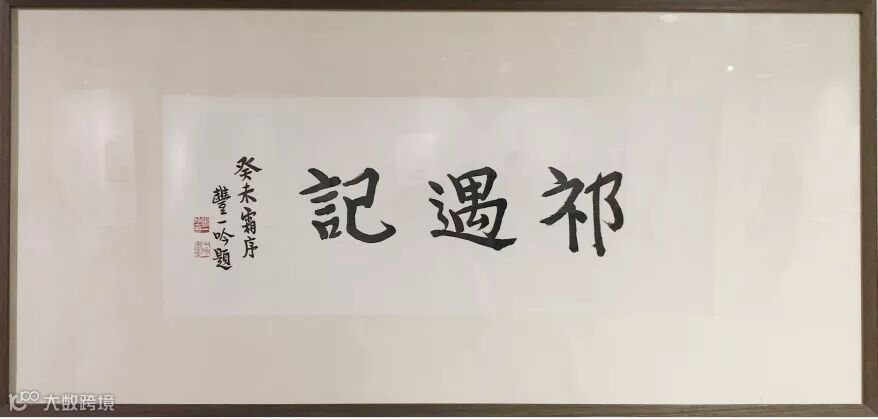 祁遇記
癸未霜序
豐一吟題
大数跨境